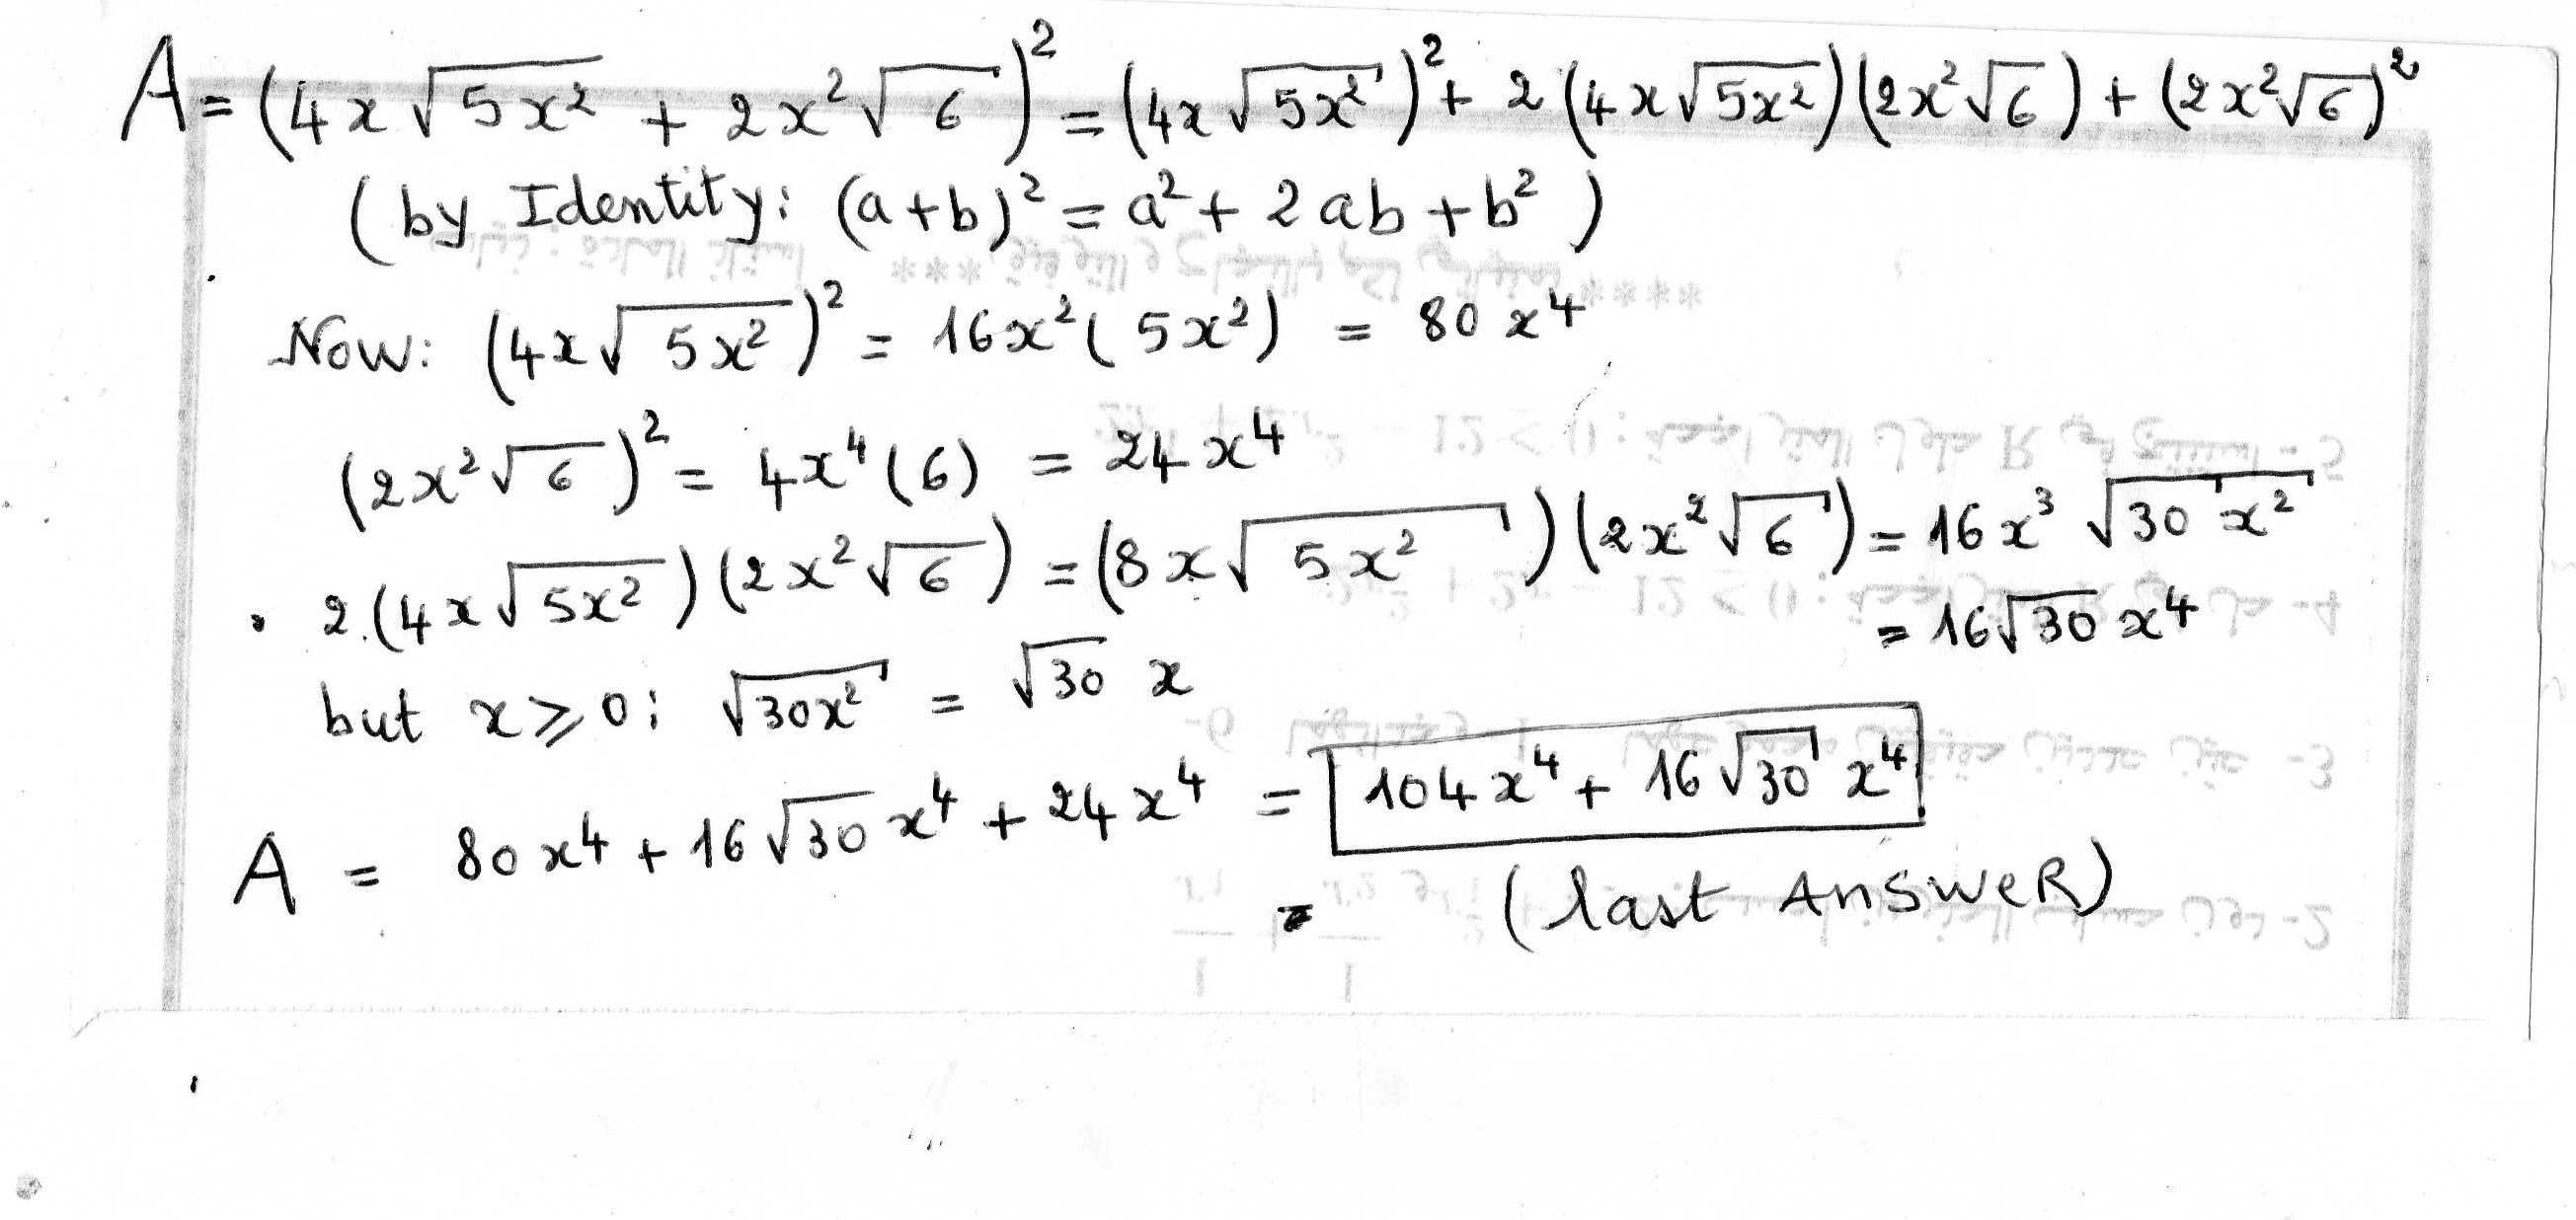 A = (4x√(5x²) + 2x²√6)² = (4x√(5x²))² + 2(4x√(5x²))(2x²√6) + (2x²√6)²
(by Identity: (a+b)² = a² + 2ab + b²)
Now: (4x√(5x²))² = 16x²(5x²) = 80x⁴
(2x²√6)² = 4x⁴(6) = 24x⁴
• 2.(4x√(5x²))(2x²√6) = (8x√(5x²))(2x²√6) = 16x³√(30x²)
= 16√30 x⁴
but x ⩾ 0: √(30x²) = √30 x
A = 80x⁴ + 16√30 x⁴ + 24x⁴ = 104x⁴ + 16√30 x⁴
= (last AnsweR)